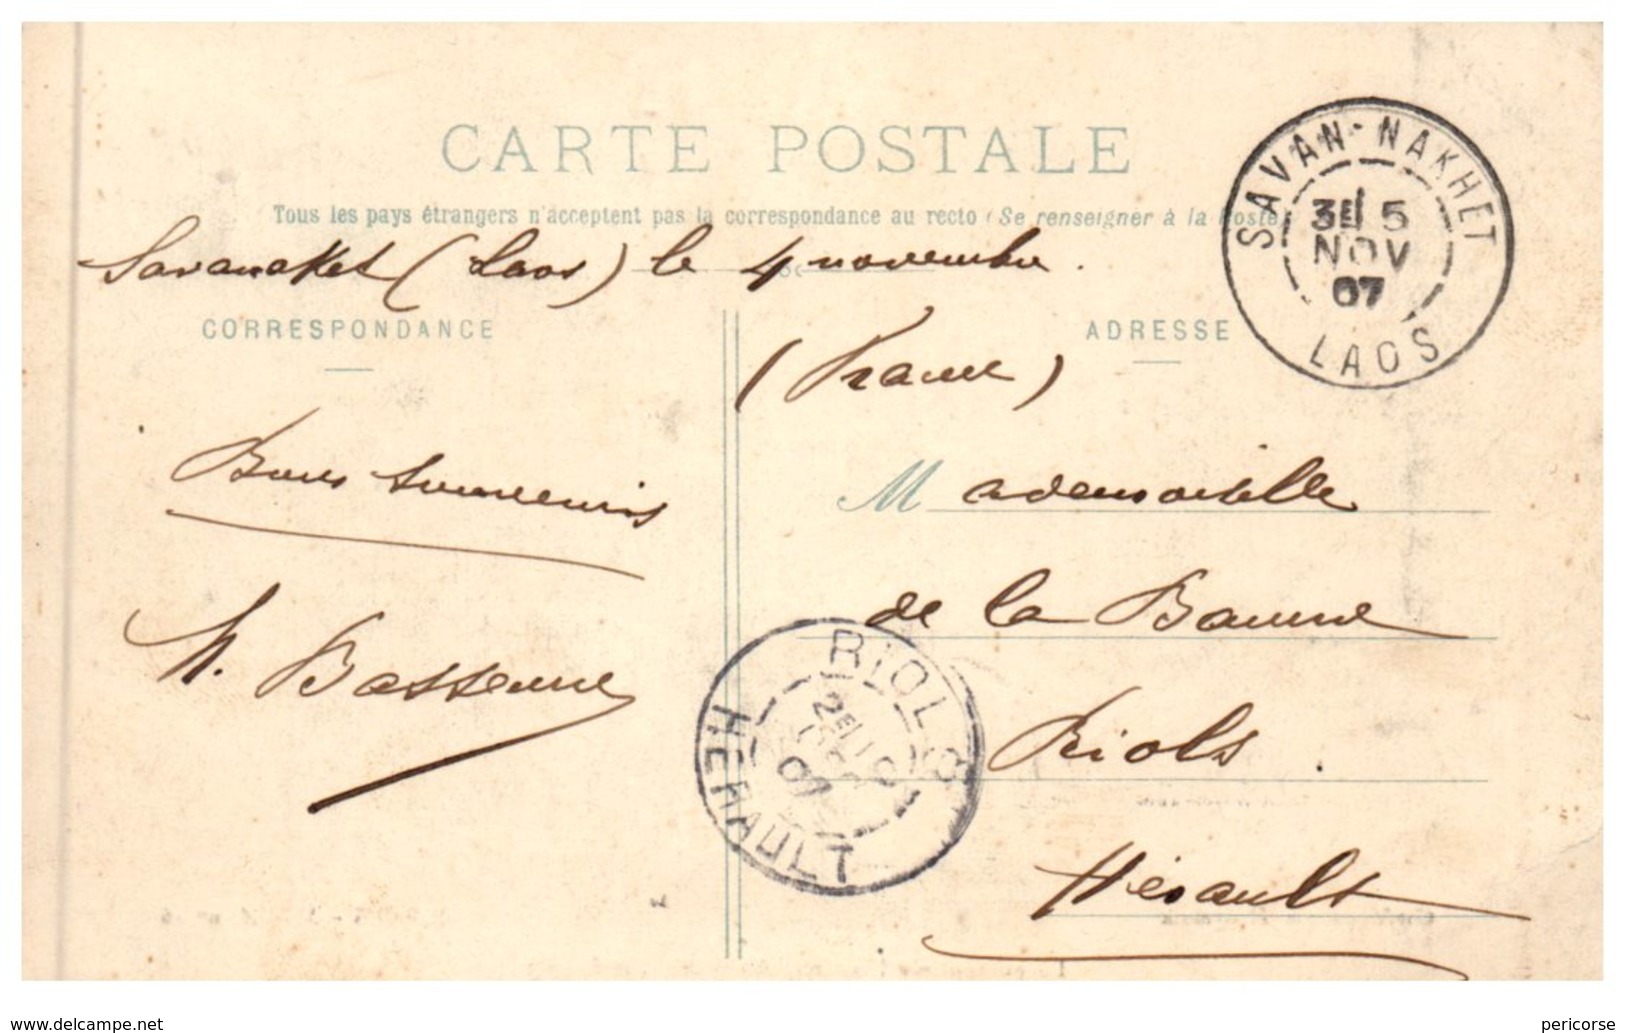 CARTE POSTALE
Tous les pays étrangers n'acceptent pas la correspondance au recto (Se renseigner à la Poste)
SAVAN-NAKHET
3E 5
NOV
07
LAOS
Savanaket (Laos) le 4 novembre.
CORRESPONDANCE
ADRESSE
(France)
Bons souvenirs
Mademoiselle
de la Baume
Riols.
Hérault
RIOLS
2E 10
07
HERAULT
www.delcampe.net
pericorse